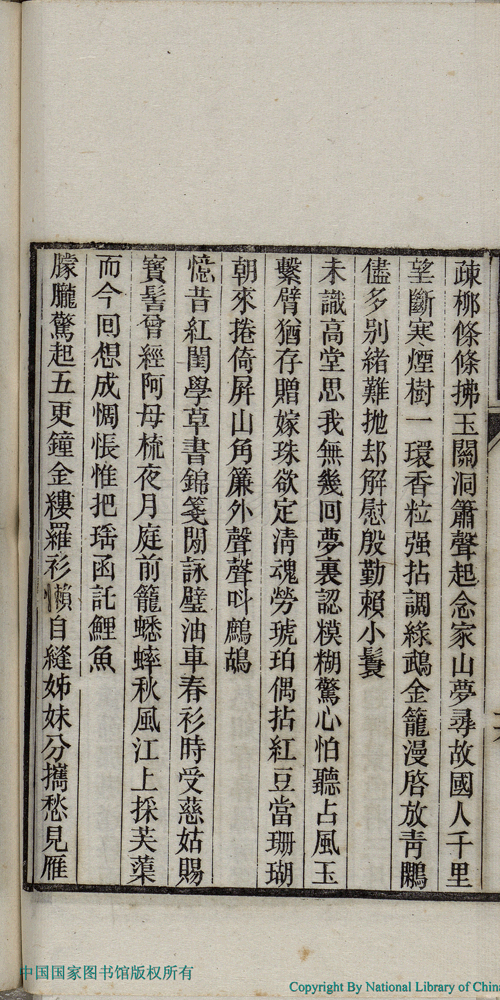 疎栁條條拂玉關洞簫聲起念家山夢尋故國人千里
望斷寒煙樹一環香粒强拈調緑鵡金籠漫啓放青鸝
儘多别緒難拋却解慰殷勤賴小鬟
未識高堂思我無幾回夢裏認模糊驚心怕聽占風玉
繫臂猶存贈嫁珠欲定淸魂勞琥珀偶拈紅豆當珊瑚
朝來捲倚屏山角簾外聲聲呌鷓鴣
憶昔紅閨學草書錦箋閒詠璧油車春衫時受慈姑賜
寶髻曾經阿母梳夜月庭前籠蟋蟀秋風江上採芙蕖
而今囘想成惆悵惟把瑶函託鯉魚
朦朧驚起五更鐘金縷羅衫懶自縫姊妹分攜愁見雁
中国国家图书馆版权所有
Copyright By National Library of Chin